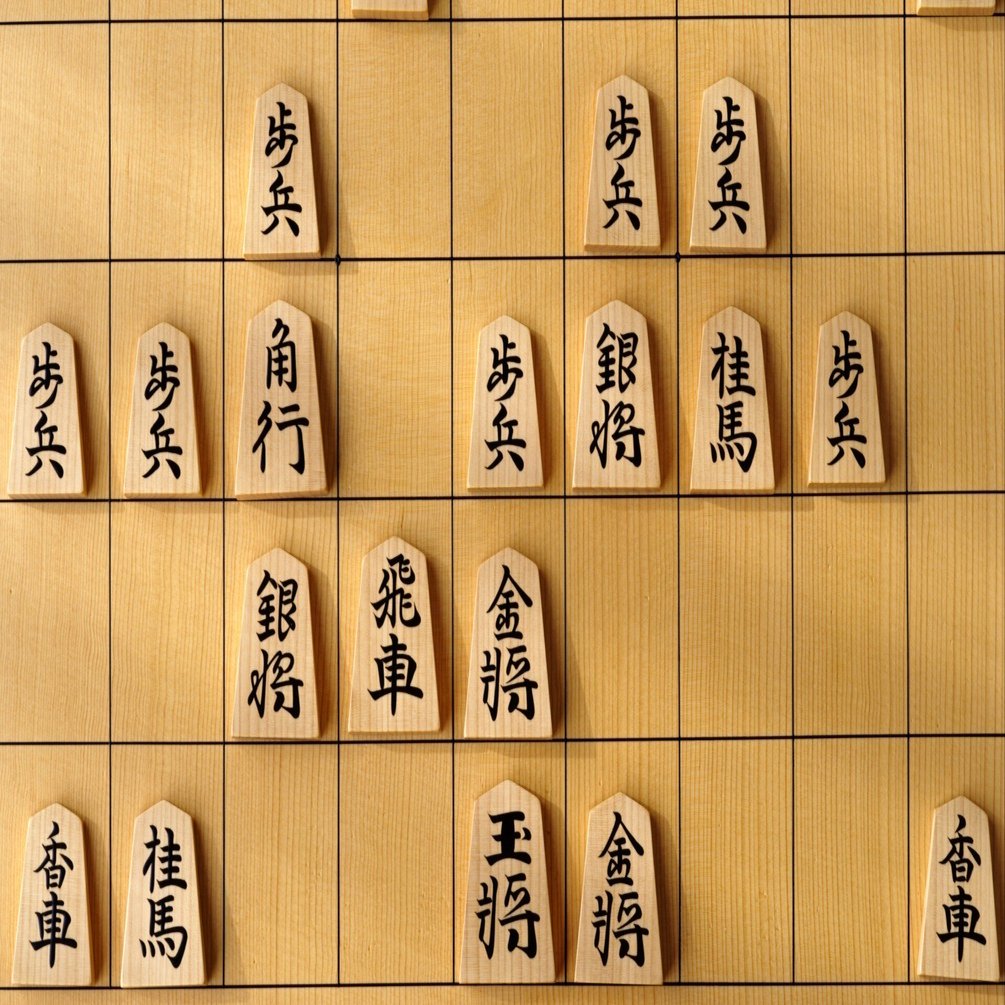 歩兵 歩兵 歩兵
歩兵 歩兵 角行 歩兵 銀将 桂馬 歩兵
銀将 飛車 金将
香車 桂馬 玉将 金将 香車